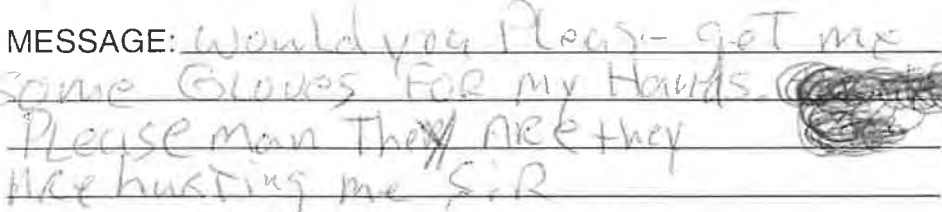 MESSAGE: Would you Pleas- get me
some Gloves FOR my Hands.
Please man They ARE they
ARe huRting me SiR